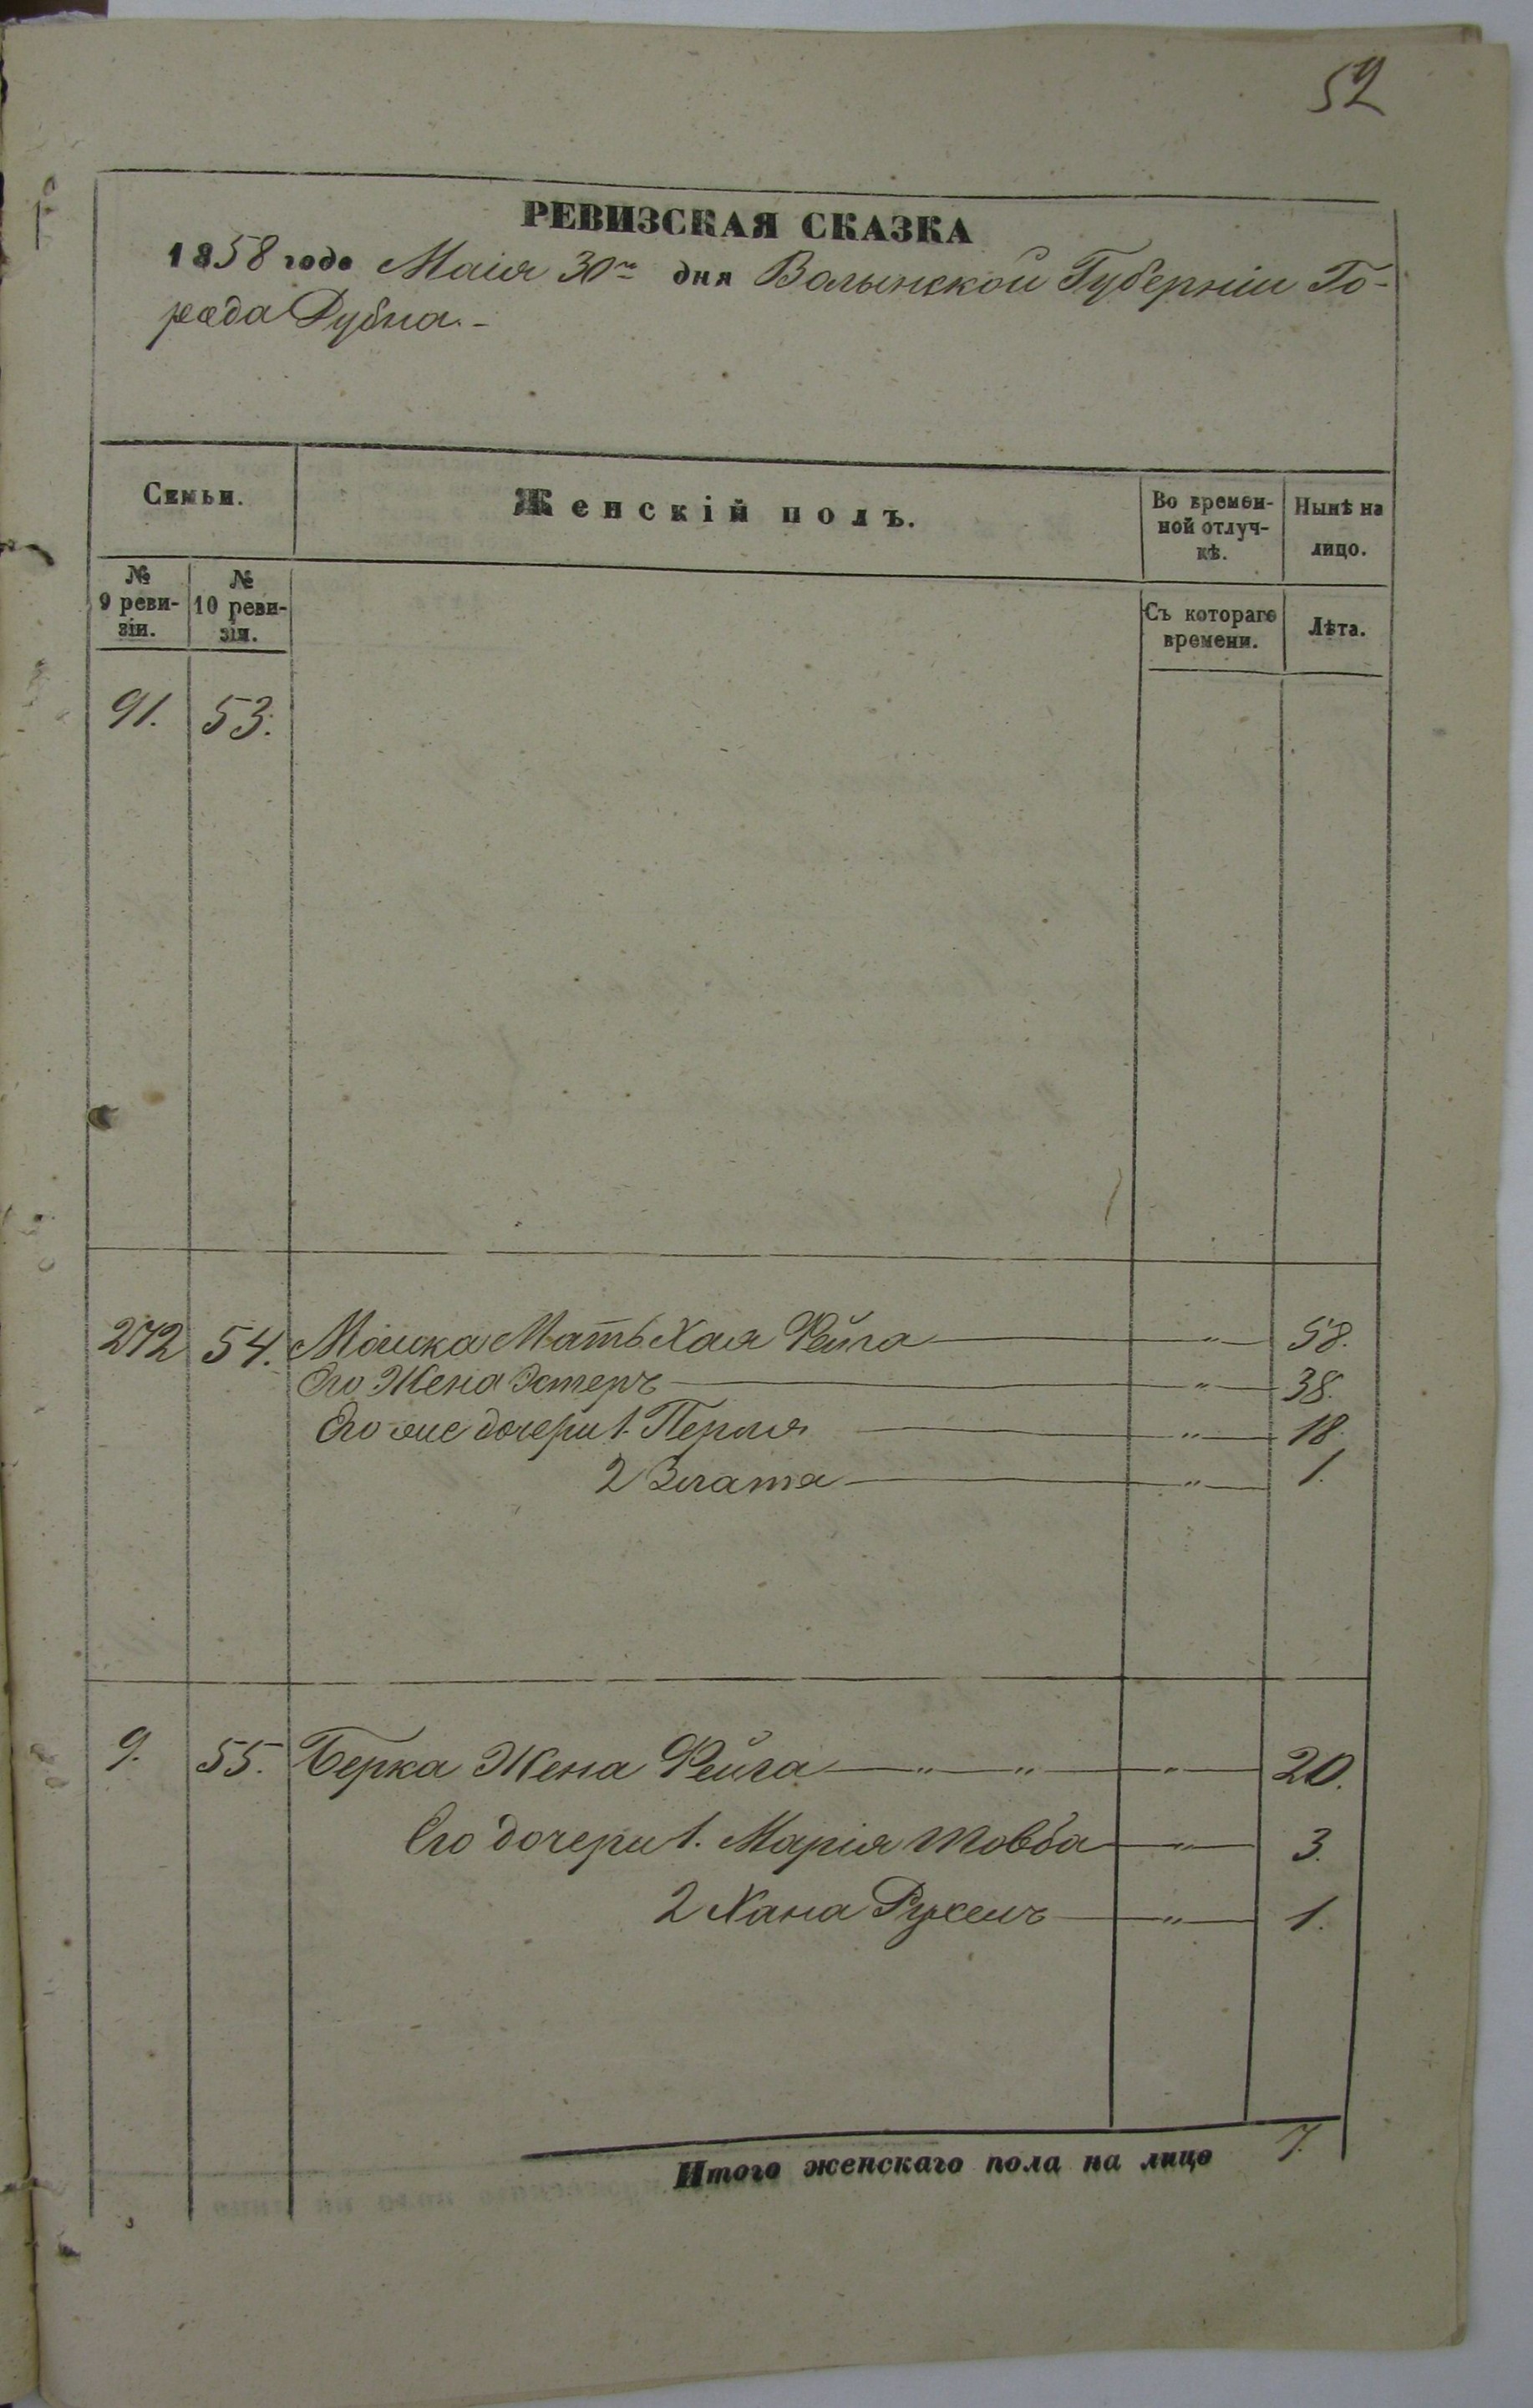 52
РЕВИЗСКАЯ СКАЗКА
1858 года Маія 30го дня Волынской Губерніи Го-
рода Дубна.-
Семьи.
Женскій полъ.
Во времен-
ной отлуч-
кѣ.
Нынѣ на
лицо.
№
9 реви-
зіи.
№
10 реви-
зіи.
Съ котораго
времени.
Лѣта.
91. 53.
272 54. Мошка Мать Хая Фейга — " — 58.
Его Жена Эстеръ — " — 38.
Его же дочери 1. Перля — " — 18.
2 Злата — " — 1.
9. 55. Берка Жена Фейга — " — " — " — 20.
Его дочери 1. Марія Товба — " — 3.
2 Хана Рухель — " — 1.
Итого женскаго пола на лицо 7.